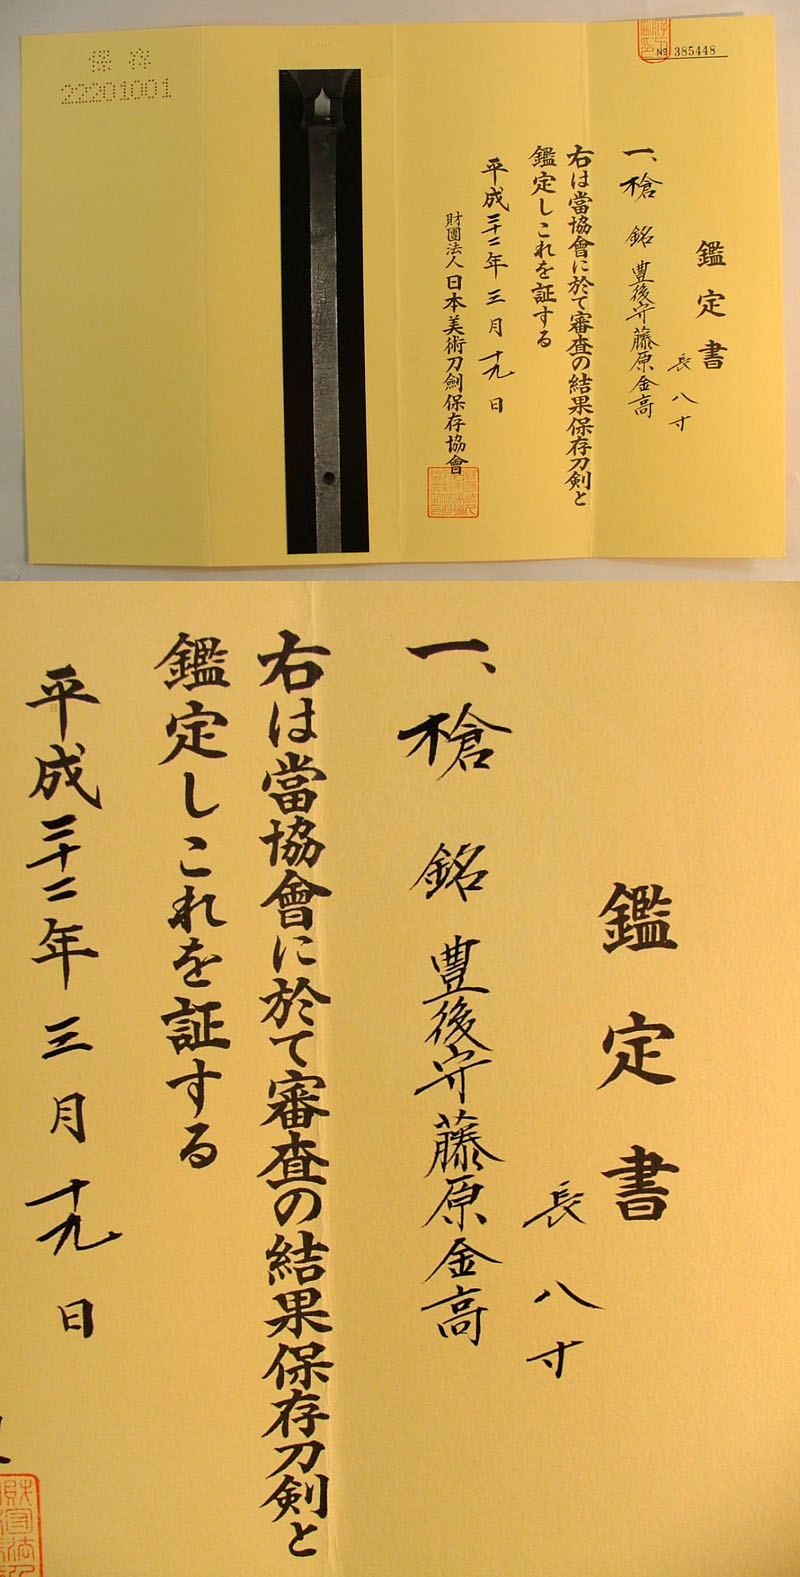 保存
22201001
№ 385448
鑑定書
長 八寸
一、槍 銘 豊後守藤原金高
右は當協會に於て審査の結果保存刀剣と
鑑定しこれを証する
平成二十二年 三月 十九日
財團法人日本美術刀劍保存協會
鑑定書
長 八寸
一、槍 銘 豊後守藤原金高
右は當協會に於て審査の結果保存刀剣と
鑑定しこれを証する
平成二十二年 三月 十九日